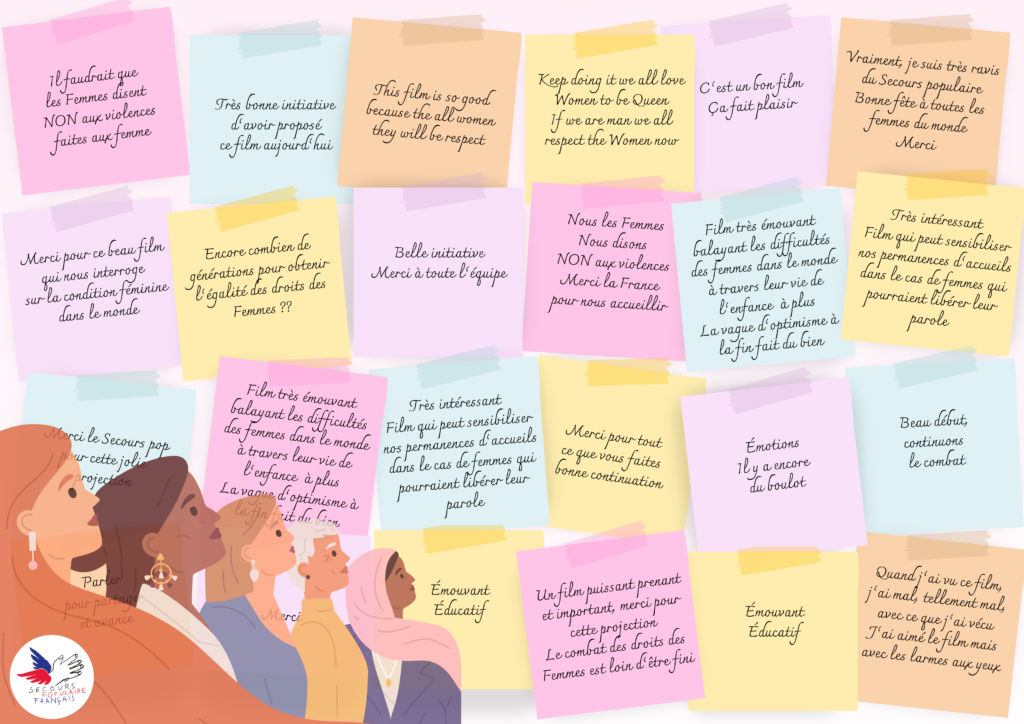 Il faudrait que
les Femmes disent
NON aux violences
faites aux femme
Très bonne initiative
d'avoir proposé
ce film aujourd'hui
This film is so good
because the all women
they will be respect
Keep doing it we all love
Women to be Queen
If we are man we all
respect the Women now
C'est un bon film
Ça fait plaisir
Vraiment, je suis très ravis
du Secours populaire
Bonne fête à toutes les
femmes du monde
Merci
Merci pour ce beau film
qui nous interroge
sur la condition féminine
dans le monde
Encore combien de
générations pour obtenir
l'égalité des droits des
Femmes ??
Belle initiative
Merci à toute l'équipe
Nous les Femmes
Nous disons
NON aux violences
Merci la France
pour nous accueillir
Film très émouvant
balayant les difficultés
des femmes dans le monde
à travers leur vie de
l'enfance à plus
La vague d'optimisme à
la fin fait du bien
Très intéressant
Film qui peut sensibiliser
nos permanences d'accueils
dans le cas de femmes qui
pourraient libérer leur
parole
Merci le Secours pop
pour cette jolie
projection
Film très émouvant
balayant les difficultés
des femmes dans le monde
à travers leur vie de
l'enfance à plus
La vague d'optimisme à
la fin fait du bien
Très intéressant
Film qui peut sensibiliser
nos permanences d'accueils
dans le cas de femmes qui
pourraient libérer leur
parole
Merci pour tout
ce que vous faites
bonne continuation
Émotions
Il y a encore
du boulot
Beau début,
continuons
le combat
Parler
pour partager
et avance
Merci
Émouvant
Éducatif
Un film puissant prenant
et important, merci pour
cette projection
Le combat des droits des
Femmes est loin d'être fini
Émouvant
Éducatif
Quand j'ai vu ce film,
j'ai mal, tellement mal,
avec ce que j'ai vécu
J'ai aimé le film mais
avec les larmes aux yeux
SECOURS
POPULAIRE
FRANÇAIS